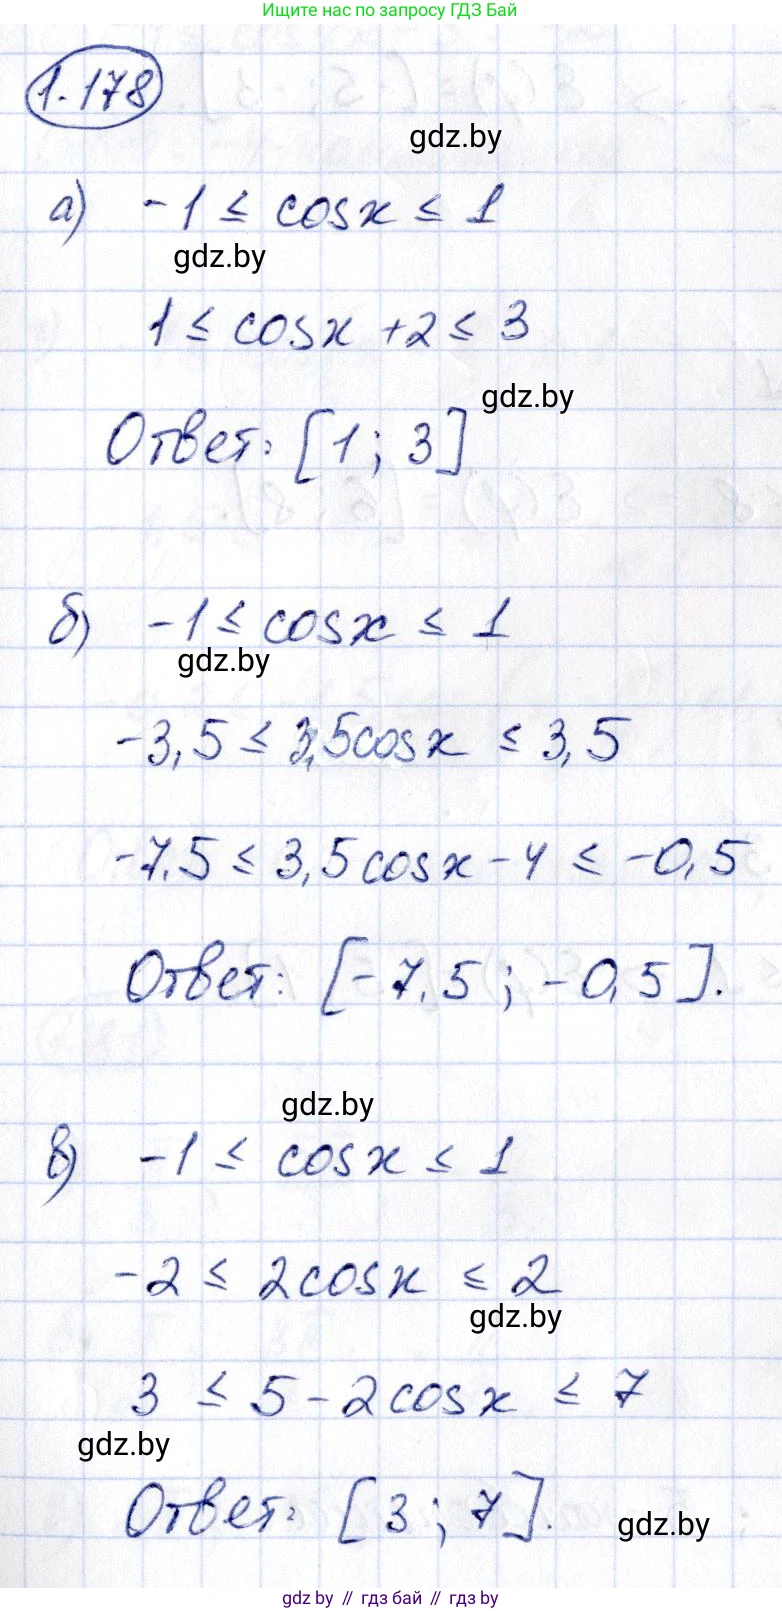 Ищите нас по запросу ГДЗ Бай
1.178
gdz.by
а) -1 ≤ cosx ≤ 1
gdz.by
1 ≤ cosx +2 ≤ 3
gdz.by
Ответ: [1; 3]
б) -1 ≤ cosx ≤ 1
gdz.by
-3,5 ≤ 3,5cosx ≤ 3,5
-7,5 ≤ 3,5cosx - 4 ≤ -0,5
Ответ: [-7,5; -0,5].
gdz.by
в) -1 ≤ cosx ≤ 1
-2 ≤ 2cosx ≤ 2
gdz.by
3 ≤ 5 - 2cosx ≤ 7
gdz.by
Ответ: [3; 7].
gdz.by
gdz by // гдз бай // гдз by